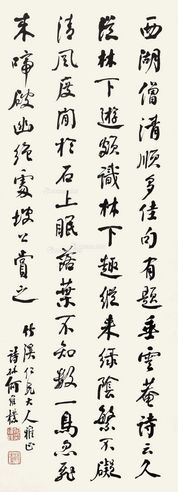 西湖僧清順多佳句有題垂雲菴詩云久
從林下遊頗識林下趣縱未綠陰繁不礙
清風度閒於石上眠落葉不知數一鳥忽飛
來啼破幽絕處坡公賞之
竹溪仁兄大人雅正
詩孫何維樸